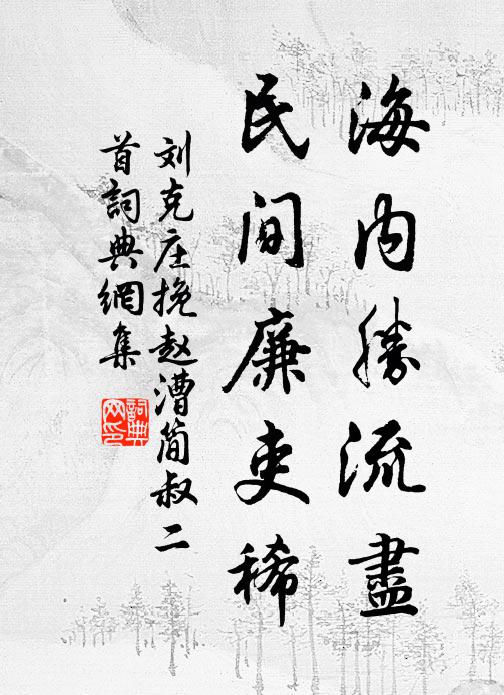 海内勝流盡
民间廉吏稀
刘克庄挽赵漕简叔二
首詞典網集
詞典
网印